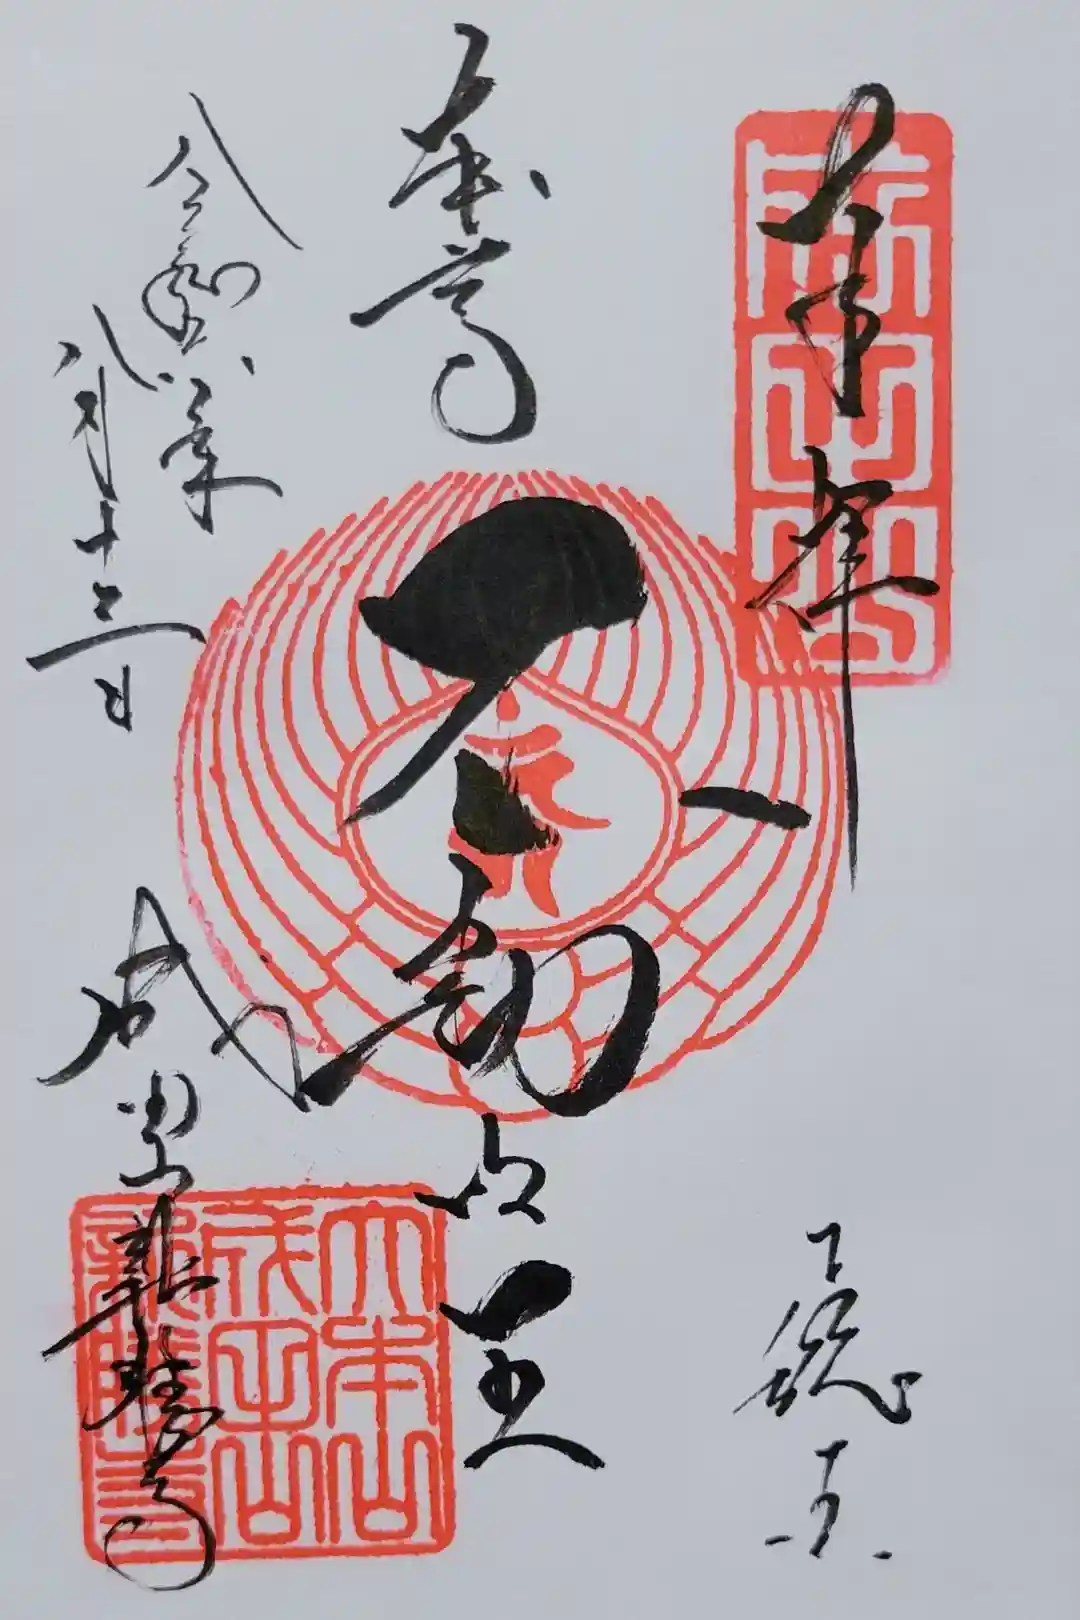 奉拝
下総
本尊
不動明王
令和
八月十三日
成田山新勝寺
成田山
大本山
成田山
新勝寺